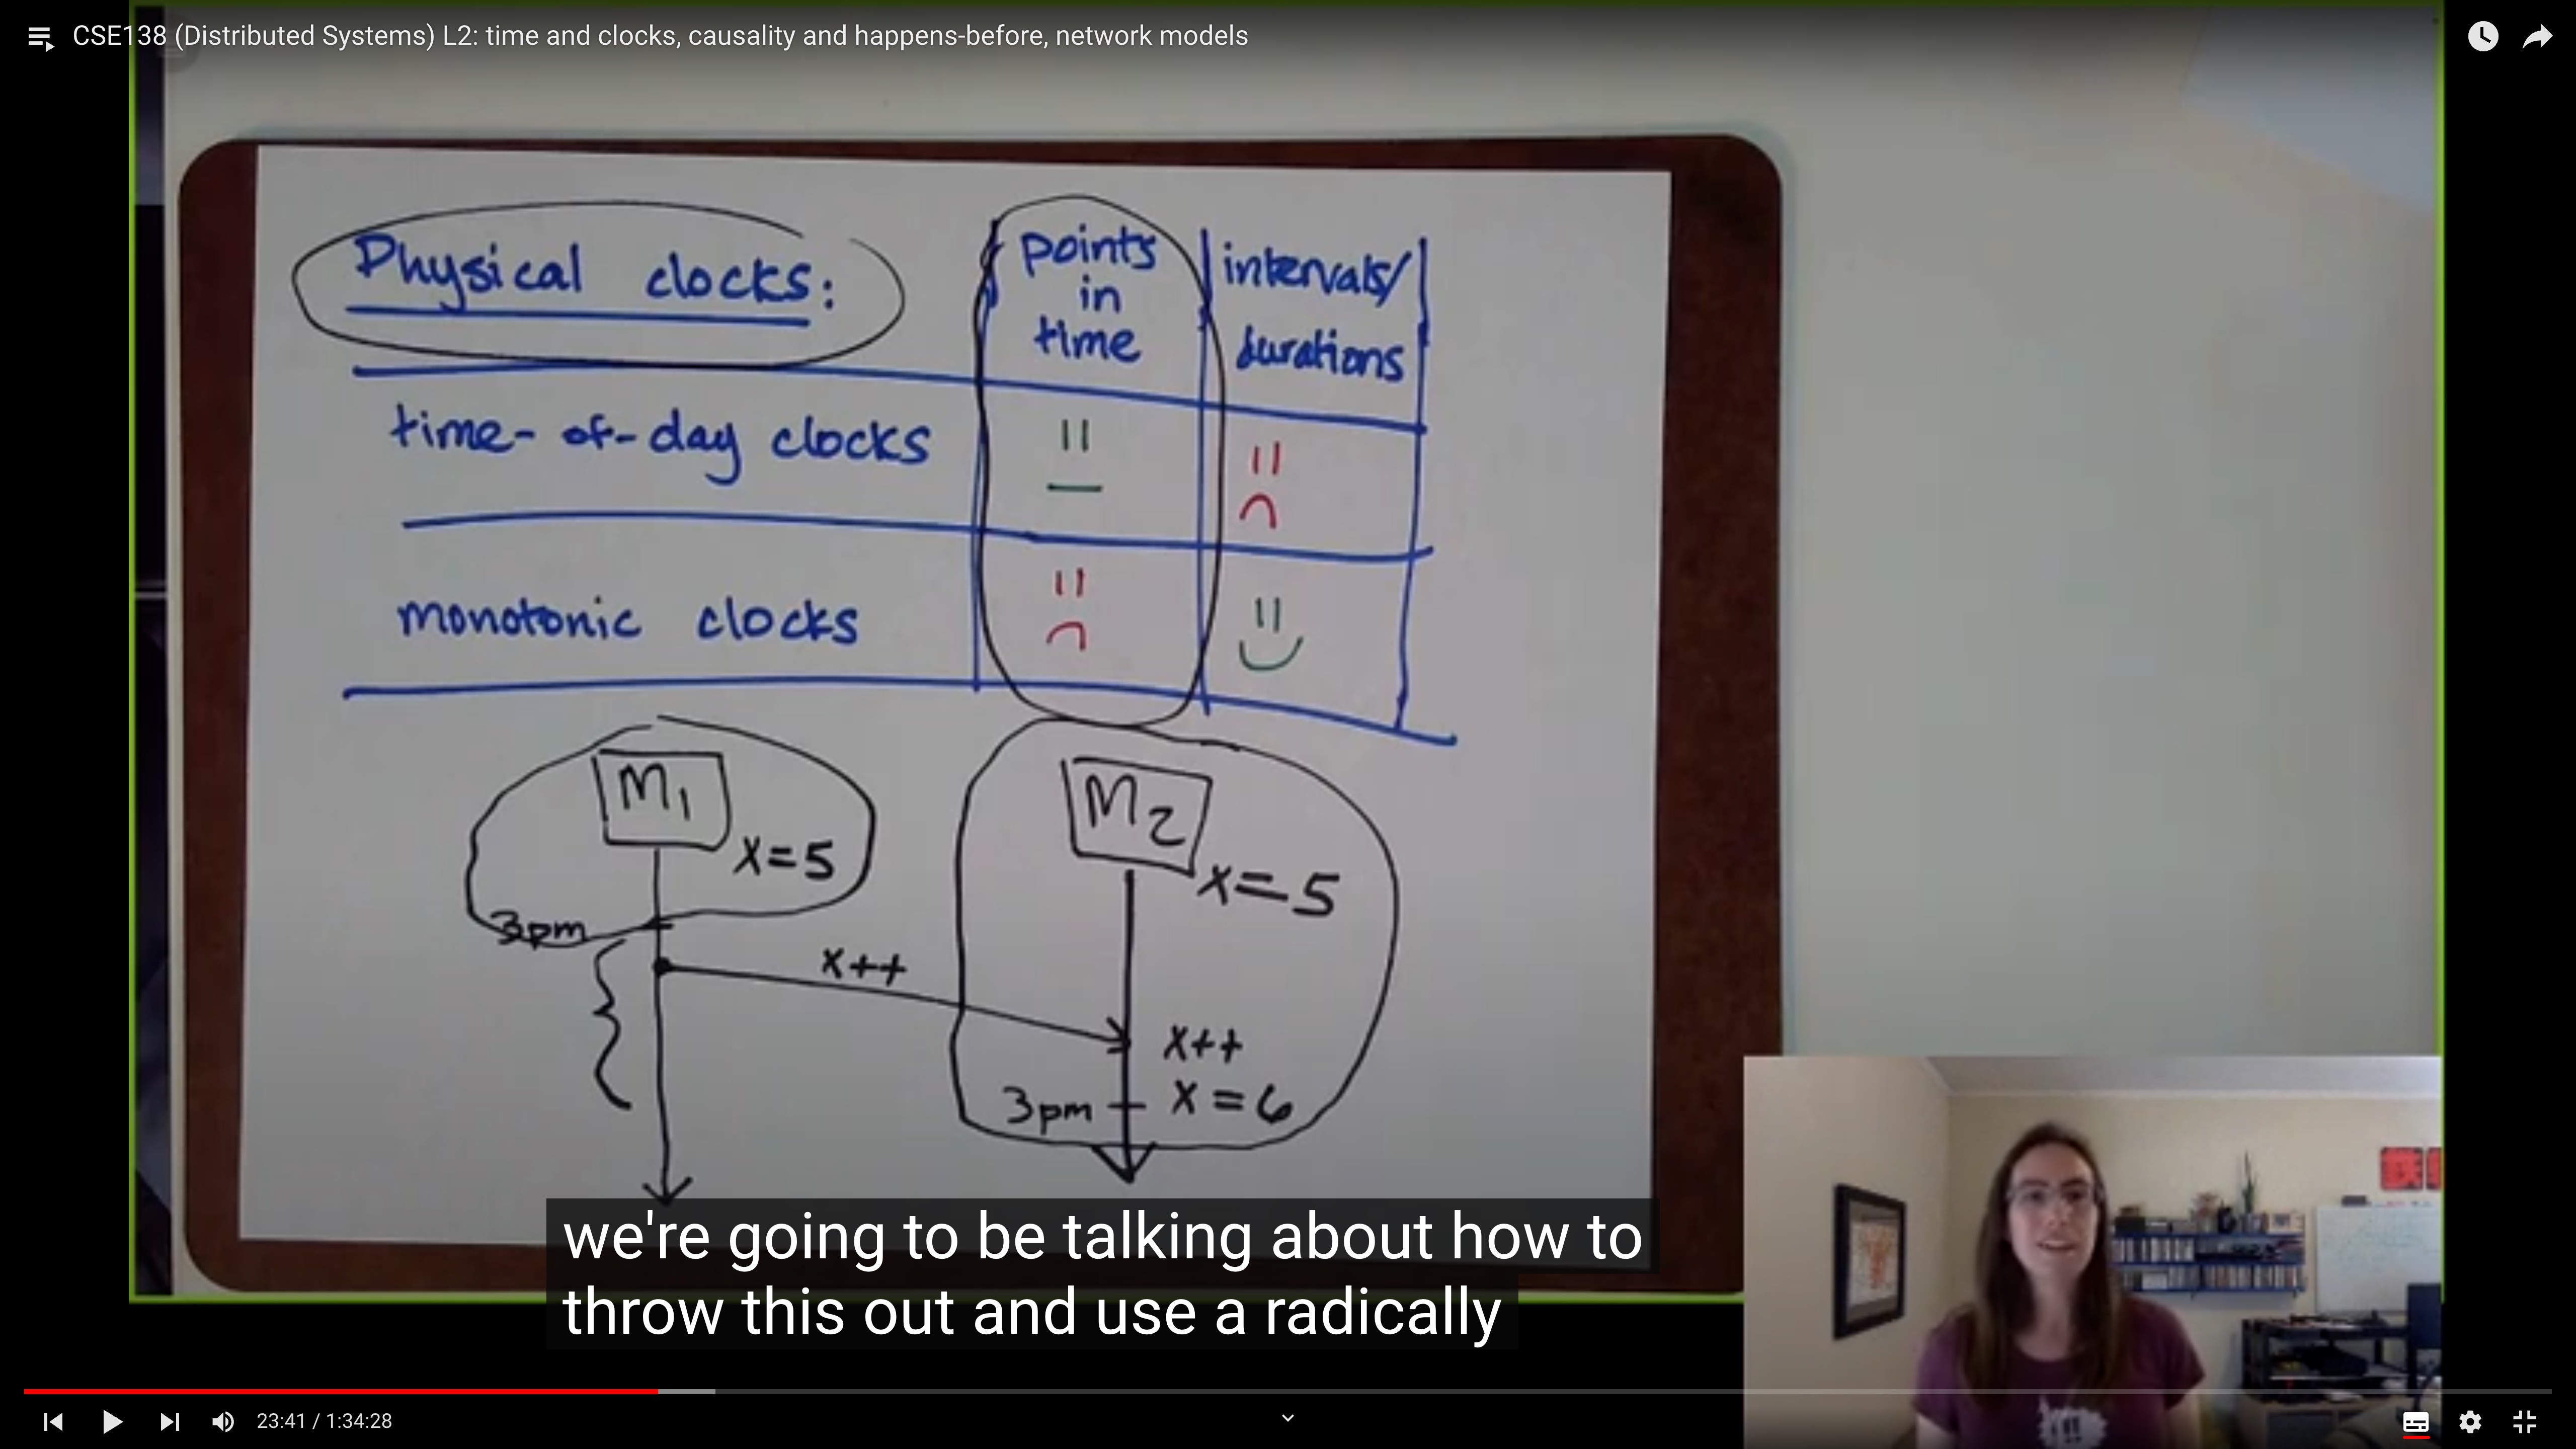 CSE138 (Distributed Systems) L2: time and clocks, causality and happens-before, network models
Physical clocks:
points
in
time
intervals/
durations
time-of-day clocks
monotonic clocks
M1
x=5
M2
x=5
3pm
x++
x++
x=6
3pm
we're going to be talking about how to
throw this out and use a radically
23:41 / 1:34:28